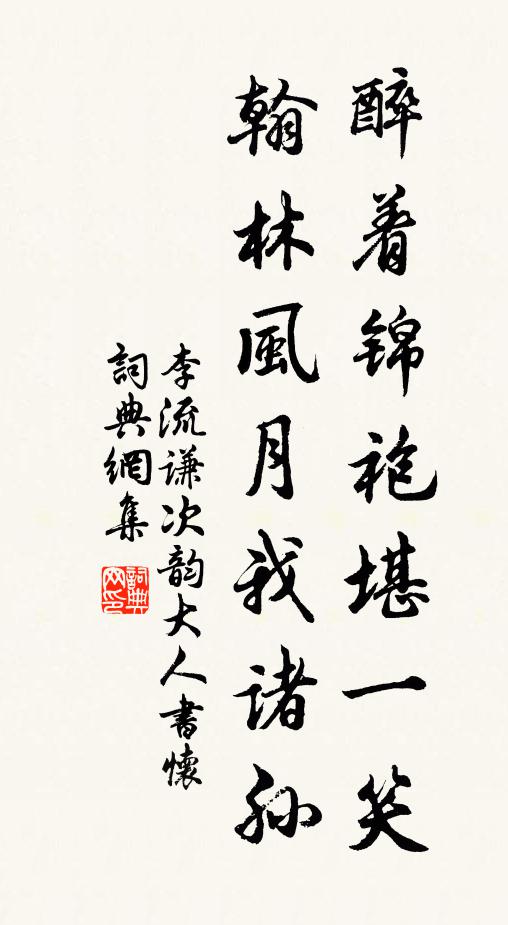 醉着锦袍堪一笑
翰林風月我诸孙
李流谦次韵大人書懷
詞典網集
詞典网印